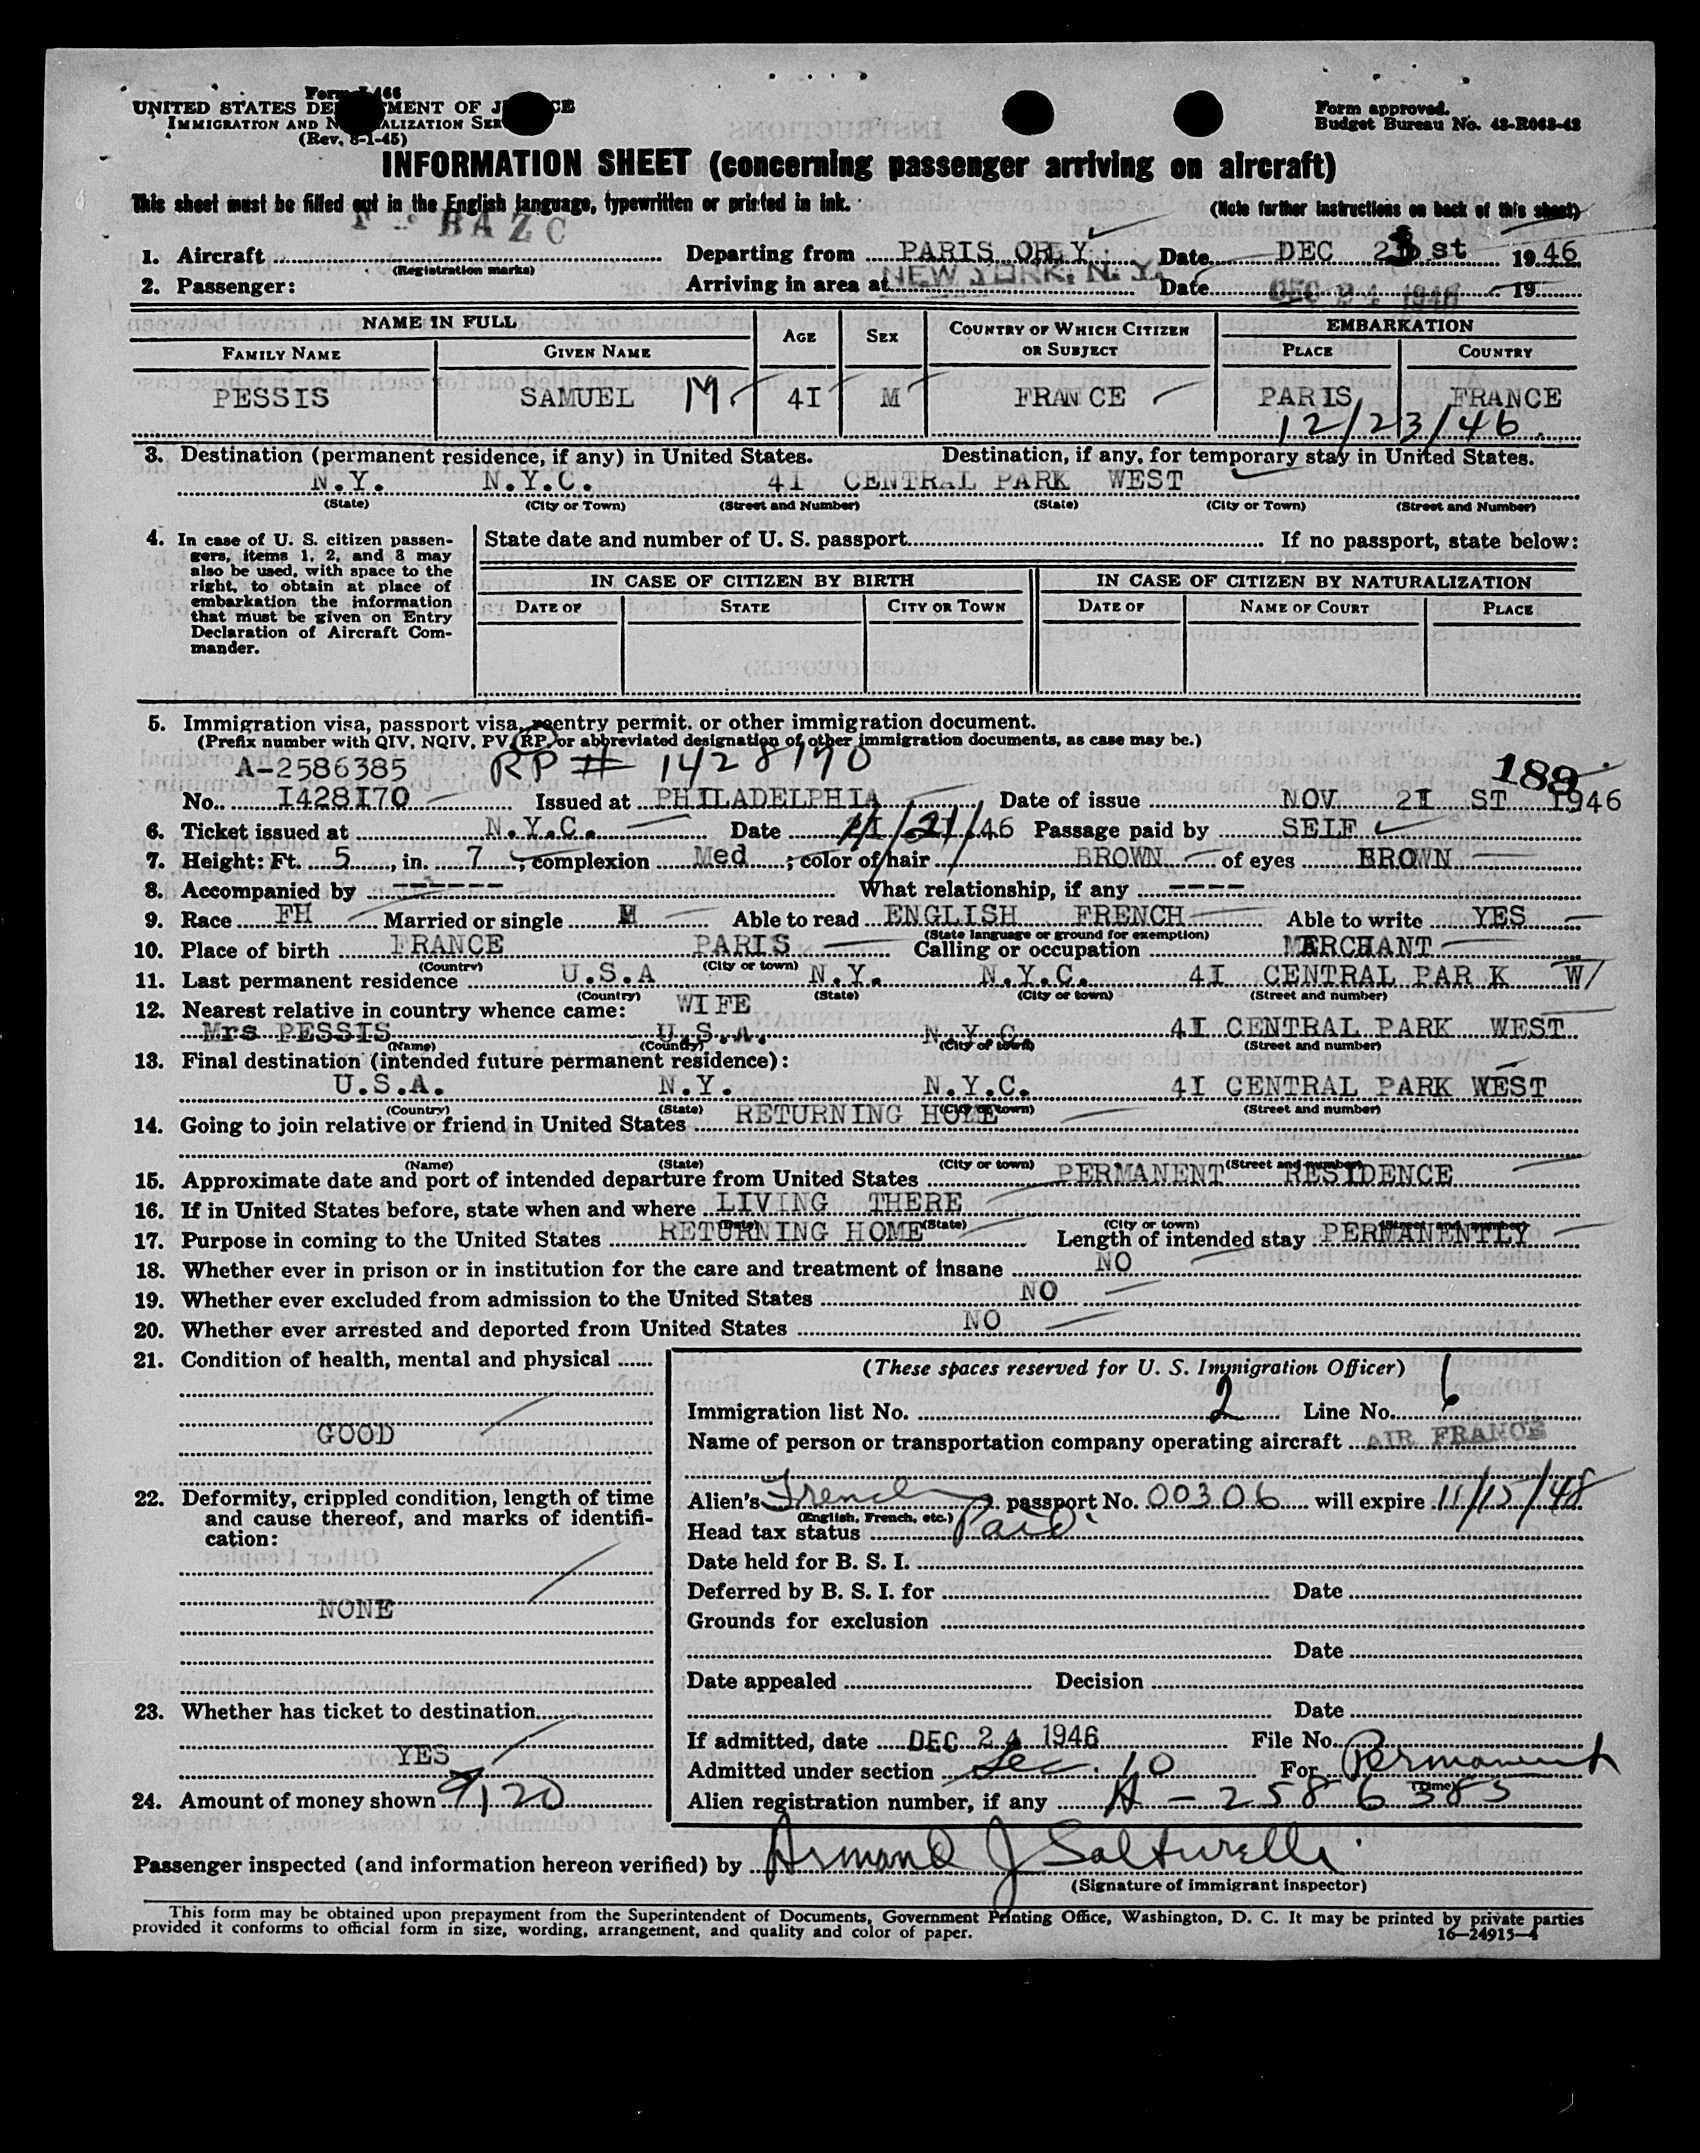 Form I-466
UNITED STATES DEPARTMENT OF JUSTICE
IMMIGRATION AND NATURALIZATION SERVICE
(Rev. 8-1-45)
Form approved.
Budget Bureau No. 43-R063-42
INFORMATION SHEET (concerning passenger arriving on aircraft)
This sheet must be filled out in the English language, typewritten or printed in ink.
(Note further instructions on back of this sheet)
BAZC
1. Aircraft Departing from PARIS ORLY Date DEC st 1946
(Registration marks)
2. Passenger: Arriving in area at NEW YORK, N. Y. Date DEC 24 1946 19
NAME IN FULL AGE SEX COUNTRY OF WHICH CITIZEN OR SUBJECT EMBARKATION
FAMILY NAME GIVEN NAME PLACE COUNTRY
PESSIS SAMUEL M 4I M FRANCE PARIS FRANCE
12/23/46
3. Destination (permanent residence, if any) in United States. Destination, if any, for temporary stay in United States.
N.Y. N.Y.C. 4I CENTRAL PARK WEST
(State) (City or Town) (Street and Number) (State) (City or Town) (Street and Number)
4. In case of U. S. citizen passen-
gers, items 1, 2, and 3 may
also be used, with space to the
right, to obtain at place of
embarkation the information
that must be given on Entry
Declaration of Aircraft Com-
mander.
State date and number of U. S. passport If no passport, state below:
IN CASE OF CITIZEN BY BIRTH IN CASE OF CITIZEN BY NATURALIZATION
DATE OF STATE CITY OR TOWN DATE OF NAME OF COURT PLACE
5. Immigration visa, passport visa, reentry permit, or other immigration document.
(Prefix number with QIV, NQIV, PV, RP, or abbreviated designation of other immigration documents, as case may be.)
A-2586385 RP # 1428170 188
No. I428I70 Issued at PHILADELPHIA Date of issue NOV 2I ST 1946
6. Ticket issued at N.Y.C. Date 11/21/46 Passage paid by SELF
7. Height: Ft. 5, in. 7; complexion Med; color of hair BROWN of eyes BROWN
8. Accompanied by ------ What relationship, if any ----
9. Race FH Married or single M Able to read ENGLISH FRENCH Able to write YES
(State language or ground for exemption)
10. Place of birth FRANCE PARIS Calling or occupation MERCHANT
(Country) (City or town)
11. Last permanent residence U.S.A N.Y. N.Y.C. 4I CENTRAL PAR K W/
(Country) (State) (City or town) (Street and number)
12. Nearest relative in country whence came: WIFE
Mrs PESSIS U.S.A. N.Y.C. 4I CENTRAL PARK WEST
(Name) (Country) (City or town) (Street and number)
13. Final destination (intended future permanent residence):
U.S.A. N.Y. N.Y.C. 4I CENTRAL PARK WEST
(Country) (State) (City or town) (Street and number)
14. Going to join relative or friend in United States RETURNING HOME
(Name) (State) (City or town) (Street and number)
15. Approximate date and port of intended departure from United States PERMANENT RESIDENCE
16. If in United States before, state when and where LIVING THERE
(Date) (State) (City or town) (Street and number)
17. Purpose in coming to the United States RETURNING HOME Length of intended stay PERMANENTLY
18. Whether ever in prison or in institution for the care and treatment of insane NO
19. Whether ever excluded from admission to the United States NO
20. Whether ever arrested and deported from United States NO
21. Condition of health, mental and physical
GOOD
22. Deformity, crippled condition, length of time
and cause thereof, and marks of identifi-
cation:
NONE
23. Whether has ticket to destination
YES
24. Amount of money shown 120
(These spaces reserved for U. S. Immigration Officer)
Immigration list No. 2 Line No. 6
Name of person or transportation company operating aircraft AIR FRANCE
Alien's French passport No. 00306 will expire 11/15/48
(English, French, etc.)
Head tax status Paid
Date held for B. S. I.
Deferred by B. S. I. for Date
Grounds for exclusion
Date
Date appealed Decision
Date
If admitted, date DEC 24 1946 File No.
Admitted under section Sec. 10 For Permanent
(Time)
Alien registration number, if any A-2586385
Passenger inspected (and information hereon verified) by Armand J Salturelli
(Signature of immigrant inspector)
This form may be obtained upon prepayment from the Superintendent of Documents, Government Printing Office, Washington, D. C. It may be printed by private parties
provided it conforms to official form in size, wording, arrangement, and quality and color of paper.
16—24915-4